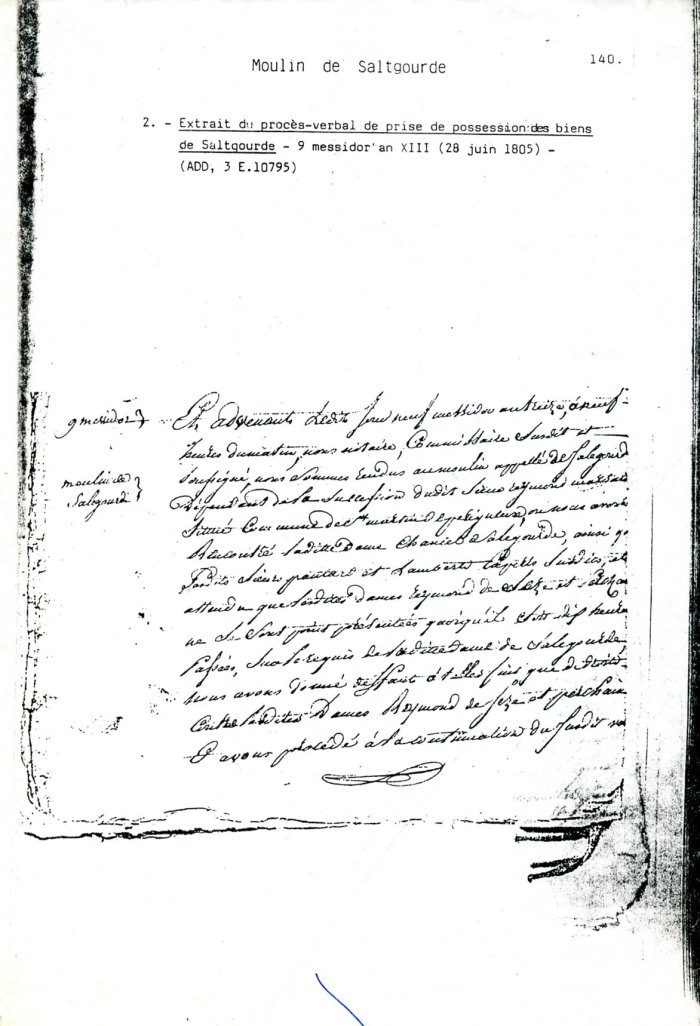 140.
Moulin de Saltgourde
2. - Extrait du procès-verbal de prise de possession des biens
de Saltgourde - 9 messidor an XIII (28 juin 1805) -
(ADD, 3 E.10795)
9 messidor
Et advenant Ledit Jour neuf messidor an treize, à neuf
heures du matin, nous notaire, Commissaire Susdit et
moulin de
Salegourde
Soussigné, nous Sommes rendus au moulin appellé de Salegourd
Dépendant de la Succession dudit Sieur reymond
Situé Commune de St martin de perigueux, ou nous avons
Rencontré Laditte Dame Chanies Salegourde, ainsi q
Lesdits Sieurs pautard et Lambert Experts Susdits, et
attendu que Lesdittes Dames reymond de Seze et
ne Se Sont point présentées quoiqu'il Soit dix heures
passées, Sur le requis de Laditte Dame de Salegourde
nous avons donné deffaut à telles fins que de droit
Contre Lesdites Dames Reymond de Seze et
& avons procédé à la continuation du Susdit